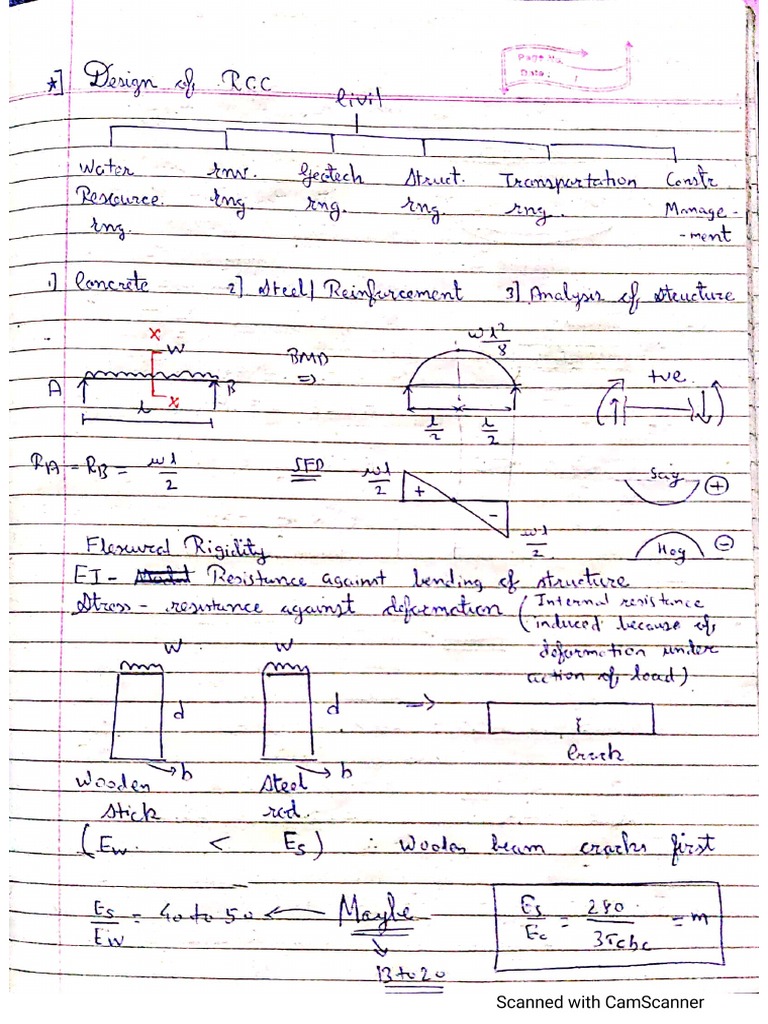 Page No.
Date : /
*] Design of RCC
Civil
Water Env. Geotech Struct. Transportation Constr.
Resource Eng. Eng. Eng. Eng. Manage-
Eng. -ment
1] Concrete 2] Steel/Reinforcement 3] Analysis of structure
X
w
wl²/8
A B BMD ⇒ +ve
X
l
l/2 l/2
RA = RB = wl/2 SFD wl/2 + - Sag +
wl/2 Hog -
Flexural Rigidity
EI - Resistance against bending of structure
Stress - resistance against deformation (Internal resistance
induced because of
deformation under
action of load)
w w
d d ⇒
b b Crack
Wooden Steel
stick rod.
(Ew < Es) ∴ Wooden beam cracks first
Es/Ew = 40 to 50 ← Maybe
Es/Ec = 280/3σcbc = m
13 to 20
Scanned with CamScanner